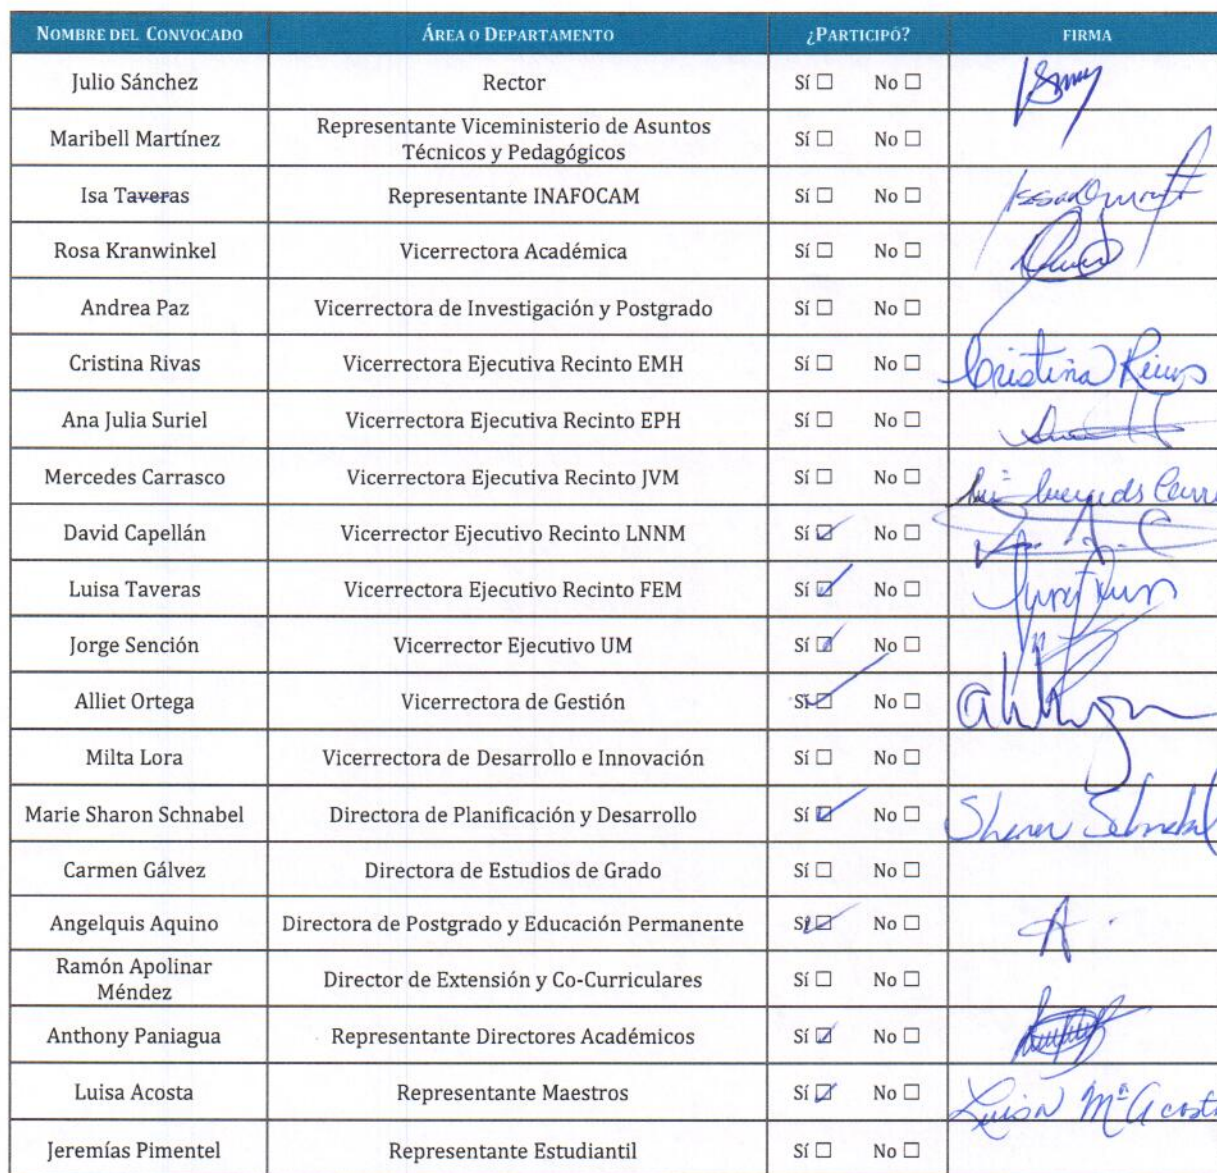 NOMBRE DEL CONVOCADO ÁREA O DEPARTAMENTO ¿PARTICIPÓ? FIRMA
Julio Sánchez Rector Sí ☐ No ☐
Maribell Martínez Representante Viceministerio de Asuntos
Técnicos y Pedagógicos Sí ☐ No ☐
Isa Taveras Representante INAFOCAM Sí ☐ No ☐
Rosa Kranwinkel Vicerrectora Académica Sí ☐ No ☐
Andrea Paz Vicerrectora de Investigación y Postgrado Sí ☐ No ☐
Cristina Rivas Vicerrectora Ejecutiva Recinto EMH Sí ☐ No ☐ Cristina Rivas
Ana Julia Suriel Vicerrectora Ejecutiva Recinto EPH Sí ☐ No ☐
Mercedes Carrasco Vicerrectora Ejecutiva Recinto JVM Sí ☐ No ☐
David Capellán Vicerrector Ejecutivo Recinto LNNM Sí ☑ No ☐
Luisa Taveras Vicerrectora Ejecutivo Recinto FEM Sí ☑ No ☐
Jorge Sención Vicerrector Ejecutivo UM Sí ☑ No ☐
Alliet Ortega Vicerrectora de Gestión Sí ☑ No ☐
Milta Lora Vicerrectora de Desarrollo e Innovación Sí ☐ No ☐
Marie Sharon Schnabel Directora de Planificación y Desarrollo Sí ☑ No ☐ Sharon Schnabel
Carmen Gálvez Directora de Estudios de Grado Sí ☐ No ☐
Angelquis Aquino Directora de Postgrado y Educación Permanente Sí ☑ No ☐
Ramón Apolinar
Méndez Director de Extensión y Co-Curriculares Sí ☐ No ☐
Anthony Paniagua Representante Directores Académicos Sí ☑ No ☐
Luisa Acosta Representante Maestros Sí ☑ No ☐ Luisa Mª Acosta
Jeremías Pimentel Representante Estudiantil Sí ☐ No ☐